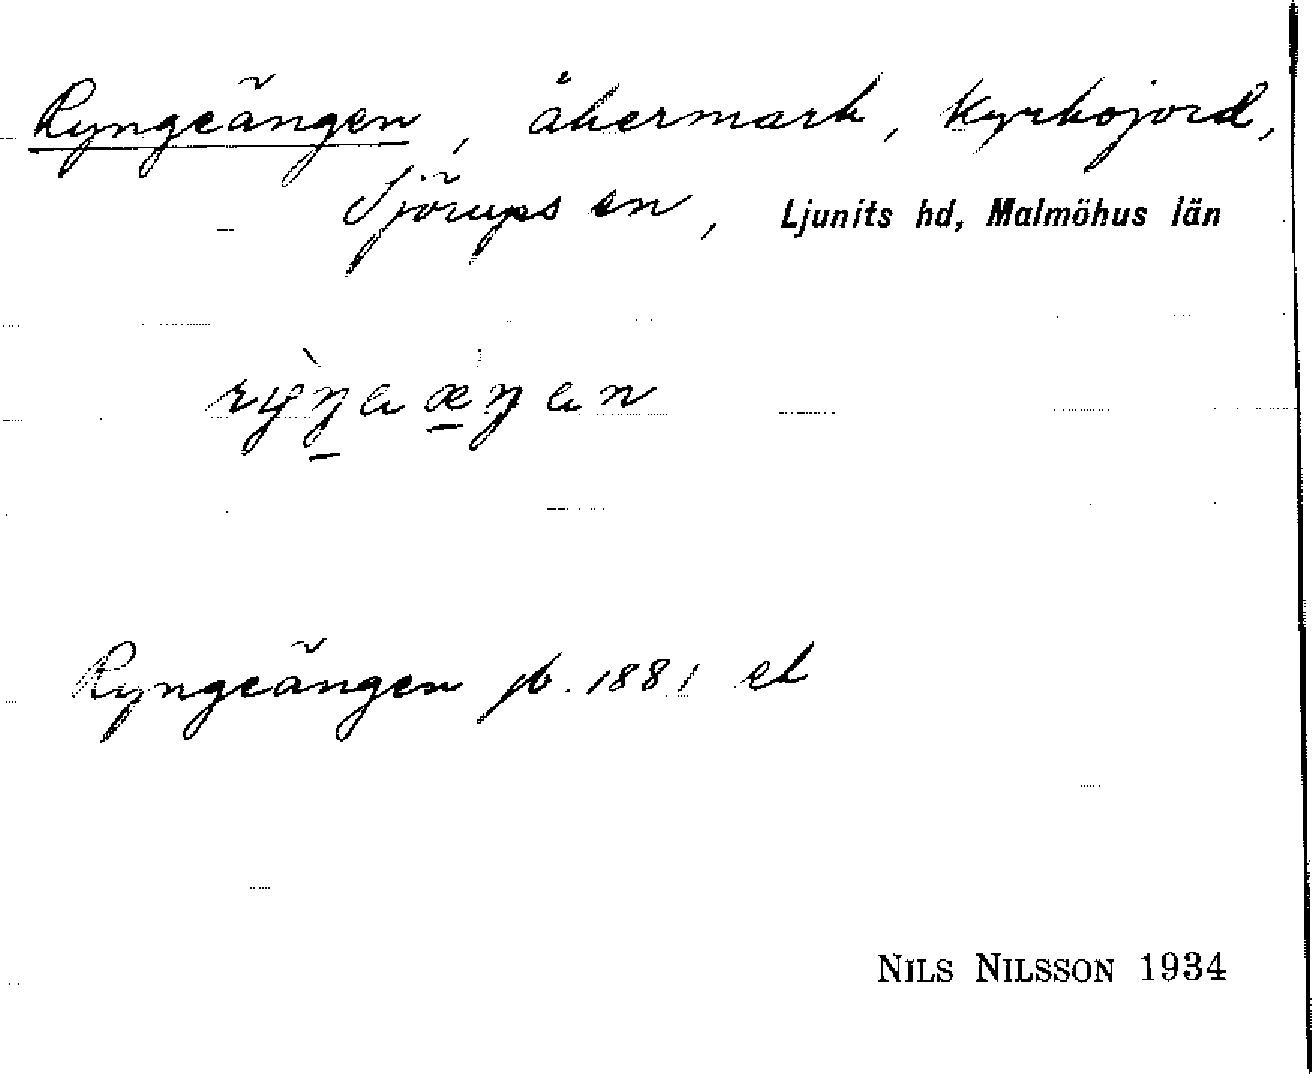 Ryngeängen, åkermark, kyrkojord,
Sjörups sn, Ljunits hd, Malmöhus län
Ryngeängen jb. 1881 ek
NILS NILSSON 1934